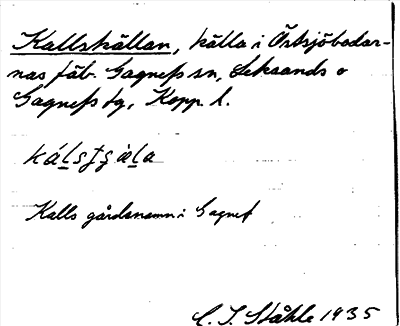 Kallskällan, källa i Östsjöbodar-
nas fäb. Gagnefs sn, Leksands o
Gagnefs tg, Kopp. l.
Kalls gårdsnamn i Gagnef
C. I. Ståhle 1935